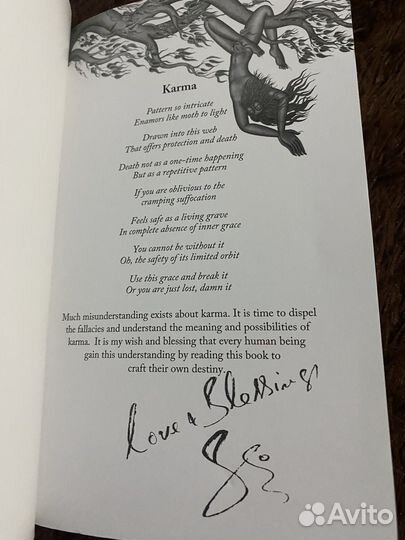 Karma
Pattern so intricate
Enamors like moth to light
Drawn into this web
That offers protection and death
Death not as a one-time happening
But as a repetitive pattern
If you are oblivious to the
cramping suffocation
Feels safe as a living grave
In complete absence of inner grace
You cannot be without it
Oh, the safety of its limited orbit
Use this grace and break it
Or you are just lost, damn it
Much misunderstanding exists about karma. It is time to dispel
the fallacies and understand the meaning and possibilities of
karma. It is my wish and blessing that every human being
gain this understanding by reading this book to
craft their own destiny.
Love & Blessings
Avito